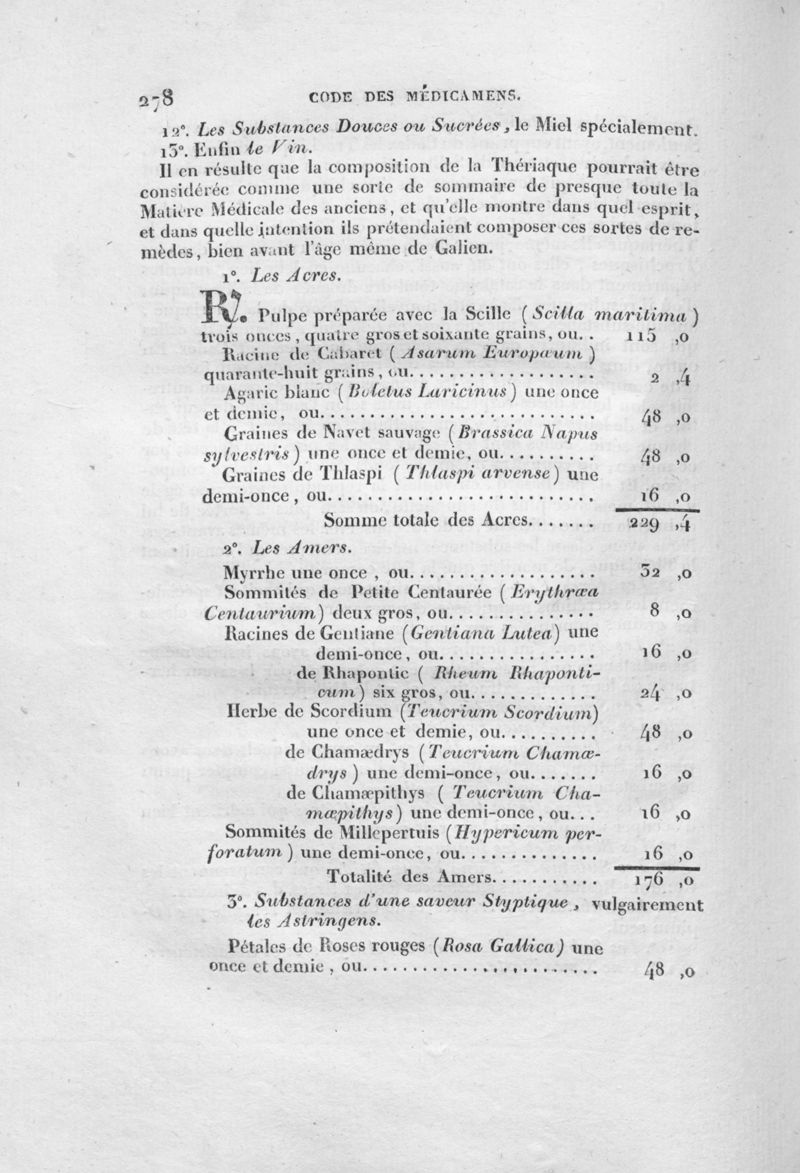 278 CODE DES MÉDICAMENS.
12°. Les Substances Douces ou Sucrées, le Miel spécialement.
13°. Enfin le Vin.
Il en résulte que la composition de la Thériaque pourrait être
considérée comme une sorte de sommaire de presque toute la
Matière Médicale des anciens, et qu'elle montre dans quel esprit,
et dans quelle intention ils prétendaient composer ces sortes de re-
mèdes, bien avant l'âge même de Galien.
1°. Les Acres.
℞. Pulpe préparée avec la Scille (Scilla maritima)
trois onces, quatre gros et soixante grains, ou. . 115 ,0
Racine de Cabaret (Asarum Europæum)
quarante-huit grains, ou. . . . . . . . . . . . . . . . . . . 2 ,4
Agaric blanc (Boletus Laricinus) une once
et demie, ou. . . . . . . . . . . . . . . . . . . . . . . . . . . . 48 ,0
Graines de Navet sauvage (Brassica Napus
sylvestris) une once et demie, ou. . . . . . . . . . 48 ,0
Graines de Thlaspi (Thlaspi arvense) une
demi-once, ou. . . . . . . . . . . . . . . . . . . . . . . . . . . 16 ,0
Somme totale des Acres. . . . . . . 229 ,4
2°. Les Amers.
Myrrhe une once, ou. . . . . . . . . . . . . . . . . . . 32 ,0
Sommités de Petite Centaurée (Erythræa
Centaurium) deux gros, ou. . . . . . . . . . . . . . . 8 ,0
Racines de Gentiane (Gentiana Lutea) une
demi-once, ou. . . . . . . . . . . . . . . . 16 ,0
de Rhapontic (Rheum Rhaponti-
cum) six gros, ou. . . . . . . . . . . . . 24 ,0
Herbe de Scordium (Teucrium Scordium)
une once et demie, ou. . . . . . . . . . 48 ,0
de Chamædrys (Teucrium Chamæ-
drys) une demi-once, ou. . . . . . . 16 ,0
de Chamæpithys (Teucrium Cha-
mæpithys) une demi-once, ou. . . 16 ,0
Sommités de Millepertuis (Hypericum per-
foratum) une demi-once, ou. . . . . . . . . . . . . . 16 ,0
Totalité des Amers. . . . . . . . . . . 176 ,0
3°. Substances d'une saveur Styptique, vulgairement
les Astringens.
Pétales de Roses rouges (Rosa Gallica) une
once et demie, ou. . . . . . . . . . . . . . . . . . . . . . . . 48 ,0